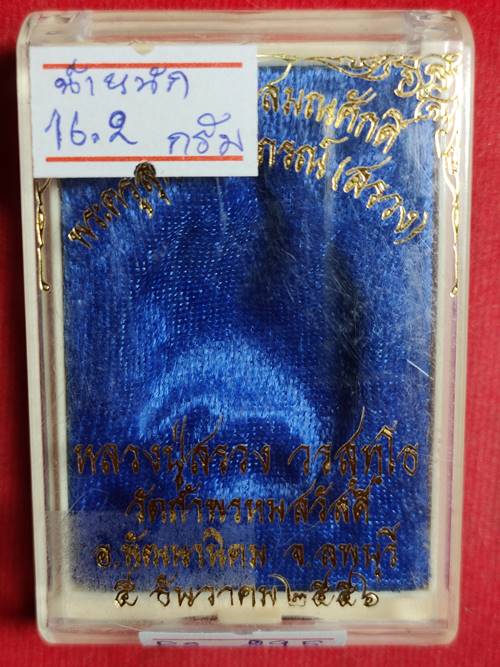 น้ำหนัก
16.2 กรัม
สมณศักดิ์
พระครู ภรณ์ (สรวง)
หลวงปู่สรวง วรสุทฺโธ
วัดถ้ำพรหมสวัสดิ์
อ.พัฒนานิคม จ.ลพบุรี
๕ ธันวาคม ๒๕๕๖